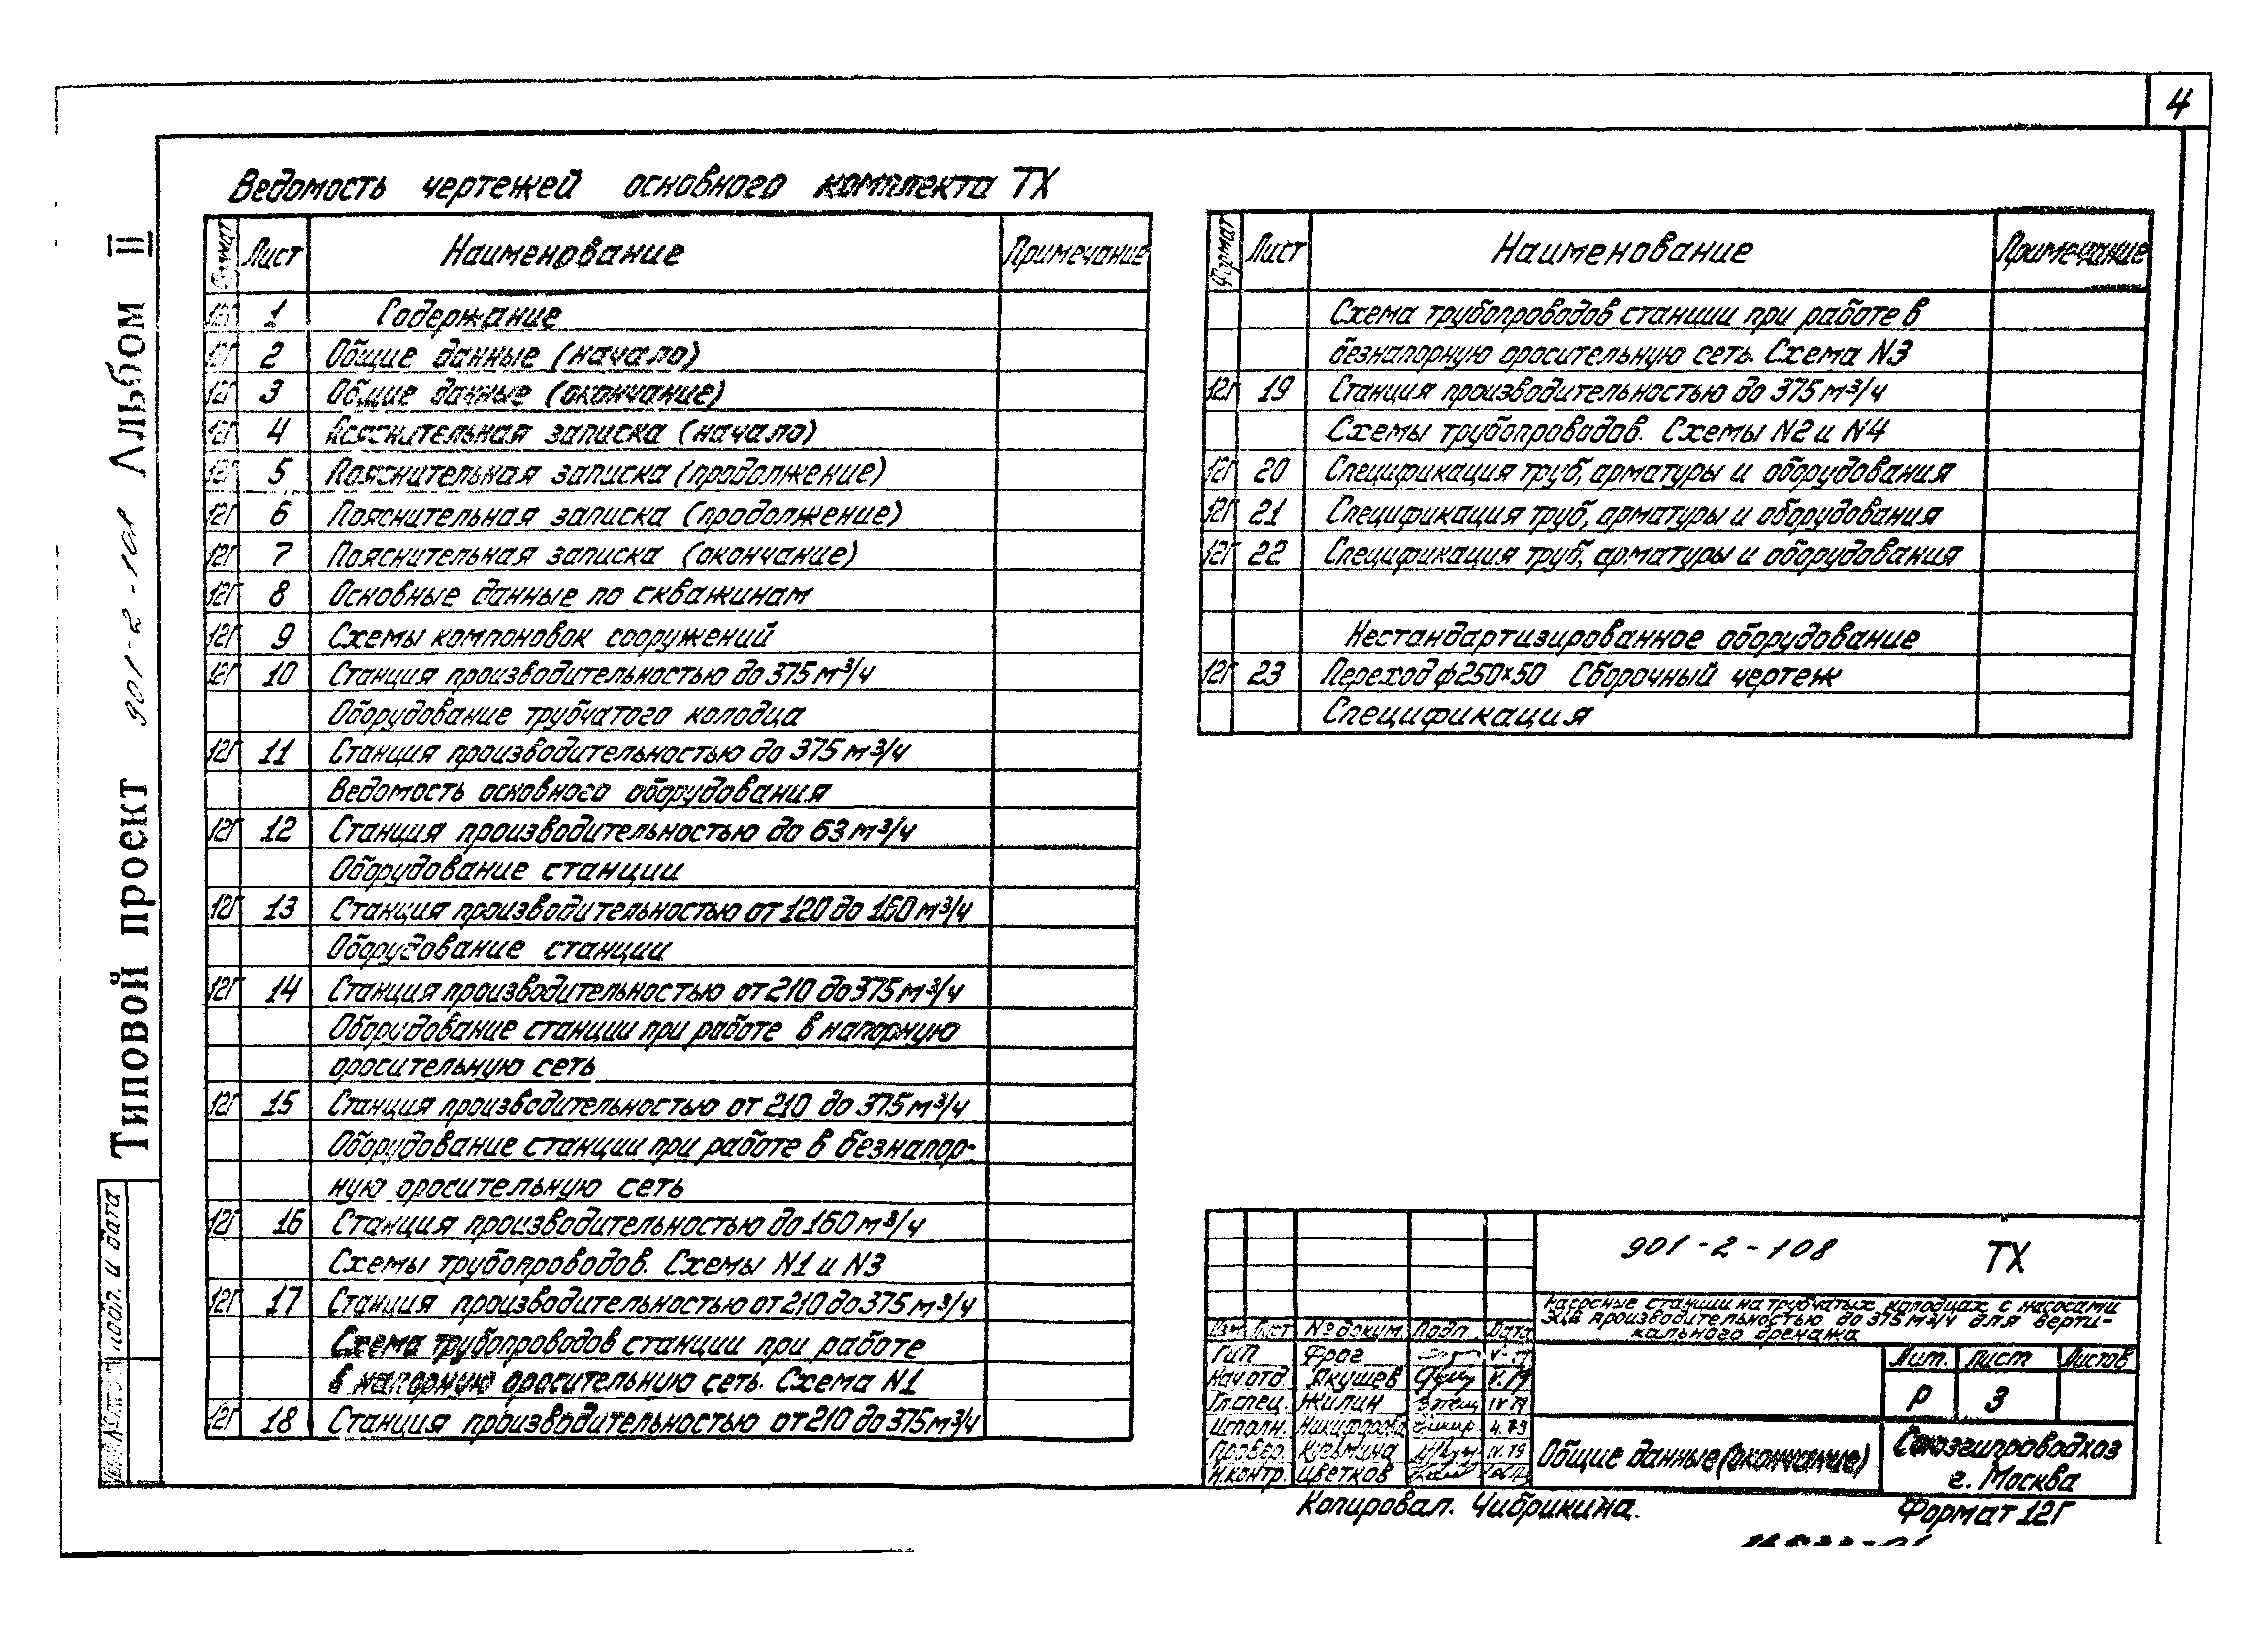 4
Типовой проект 901-2-108 Альбом II
Ведомость чертежей основного комплекта ТХ
Формат Лист Наименование Примечание
12Г 1 Содержание
12Г 2 Общие данные (начало)
12Г 3 Общие данные (окончание)
12Г 4 Пояснительная записка (начало)
12Г 5 Пояснительная записка (продолжение)
12Г 6 Пояснительная записка (продолжение)
12Г 7 Пояснительная записка (окончание)
12Г 8 Основные данные по скважинам
12Г 9 Схемы компоновок сооружений
12Г 10 Станция производительностью до 375 м³/ч
Оборудование трубчатого колодца
12Г 11 Станция производительностью до 375 м³/ч
Ведомость основного оборудования
12Г 12 Станция производительностью до 63 м³/ч
Оборудование станции
12Г 13 Станция производительностью от 120 до 160 м³/ч
Оборудование станции
12Г 14 Станция производительностью от 210 до 375 м³/ч
Оборудование станции при работе в напорную
оросительную сеть
12Г 15 Станция производительностью от 210 до 375 м³/ч
Оборудование станции при работе в безнапор-
ную оросительную сеть
12Г 16 Станция производительностью до 160 м³/ч
Схемы трубопроводов. Схемы N1 и N3
12Г 17 Станция производительностью от 210 до 375 м³/ч
Схема трубопроводов станции при работе
в напорную оросительную сеть. Схема N1
12Г 18 Станция производительностью от 210 до 375 м³/ч
Формат Лист Наименование Примечание
Схема трубопроводов станции при работе в
безнапорную оросительную сеть. Схема N3
12Г 19 Станция производительностью до 375 м³/ч
Схемы трубопроводов. Схемы N2 и N4
12Г 20 Спецификация труб, арматуры и оборудования
12Г 21 Спецификация труб, арматуры и оборудования
12Г 22 Спецификация труб, арматуры и оборудования
Нестандартизированное оборудование
12Г 23 Переход ф250×50 Сборочный чертеж
Спецификация
901-2-108 ТХ
Насосные станции на трубчатых колодцах с насосами
ЭЦВ производительностью до 375 м³/ч для верти-
кального дренажа
Изм. Лист № докум. Подп. Дата
ГИП Фрог
Нач.отд. Якушев V.79
Гл.спец. Жилин IV 79
Исполн. Никифорова 4.79
Провер. Кузьмина IV.79
Н.контр. Цветков
Лит. Лист Листов
Р 3
Общие данные (окончание)
Союзгипроводхоз
г. Москва
Копировал. Чибрикина.
Формат 12Г
подп. и дата